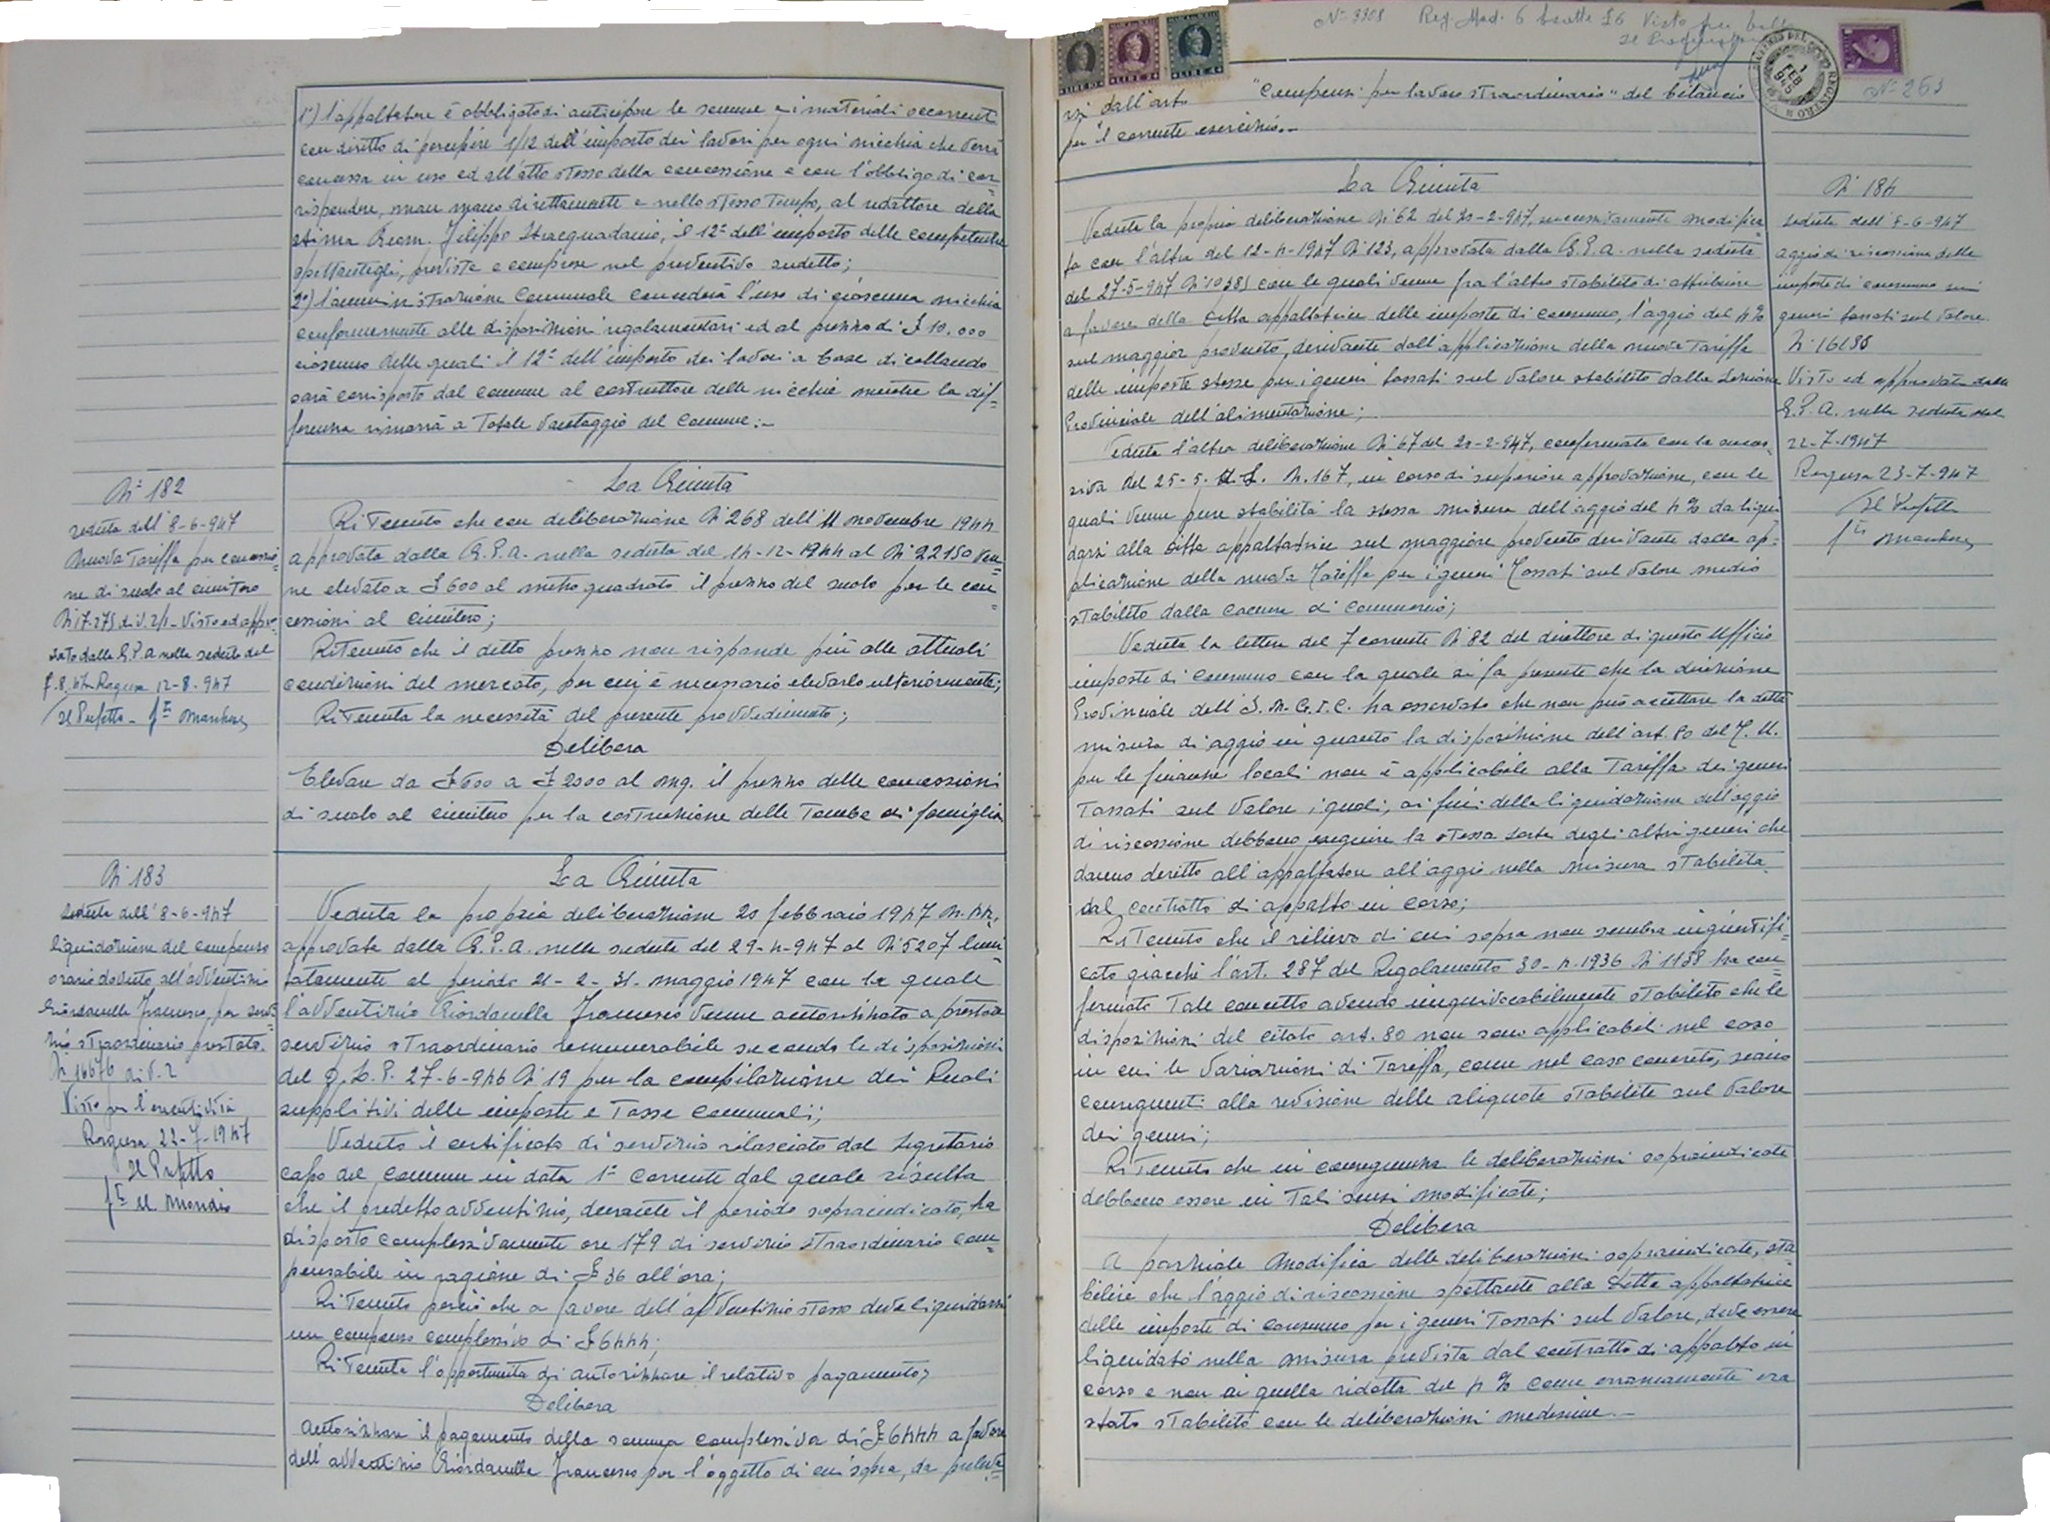 1°) l'appaltatore è obbligato di anticipare le somme e i materiali occorrenti
con diritto di percepire 1/12 dell'importo dei lavori per ogni nicchia che verrà
concessa in uso ed all'atto stesso della concessione e con l'obbligo di cor=
rispondere, man mano direttamente e nello stesso tempo, al redattore della
stima Geom. Filippo Stracquadanio, il 12° dell'importo delle competenze
spettantegli, previste e comprese nel preventivo sudetto;
2°) l'amministrazione Comunale concederà l'uso di ciascuna nicchia
conformemente alle disposizioni regolamentari ed al prezzo di £ 10.000
ciascuna delle quali il 12° dell'importo dei lavori a base di collaudo
sarà corrisposto dal comune al costruttore delle nicchie mentre la dif=
ferenza rimarrà a totale vantaggio del Comune.-
N° 182
seduta dell'8-6-947
Nuova Tariffa per concessio=
ne di suolo al cimitero
N 17275 div. 2/1 - Visto ed appro=
vato dalla G.P.A. nella seduta del
7.8.47 Ragusa 12-8-947
Il Prefetto - fto
La Giunta
Ritenuto che con deliberazione N 268 dell'11 novembre 1944
approvata dalla G.P.A. nella seduta del 14-12-1944 al N 22150 ven=
ne elevato a £ 600 al metro quadrato il prezzo del suolo per le con=
cessioni al cimitero;
Ritenuto che il detto prezzo non risponde più alle attuali
condizioni del mercato, per cui è necessario elevarlo ulteriormente;
Ritenuta la necessità del presente provvedimento;
Delibera
Elevare da £ 600 a £ 2000 al mq. il prezzo delle concessioni
di suolo al cimitero per la costruzione delle Tombe di famiglia
N 183
seduta dell'8-6-947
liquidazione del compenso
orario dovuto all'avventizio
Giordanella Francesco, per servi=
zio straordinario prestato.
N 16676 div. 2
Visto per l'esecutività
Ragusa 22-7-1947
Il Prefetto
fto
La Giunta
Veduta la propria deliberazione 20 febbraio 1947 N. 44,
approvata dalla G.P.A. nella seduta del 29-4-947 al N 5207 limi=
tatamente al periodo 21-2-31 maggio 1947 con la quale
l'avventizio Giordanella Francesco venne autorizzato a prestare
servizio straordinario remunerabile secondo le disposizioni
del D.L.P. 27-6-946 N 19 per la compilazione dei Ruoli
supplitivi delle imposte e Tasse Comunali;
Veduto il certificato di servizio rilasciato dal Segretario
capo del comune in data 1° corrente dal quale risulta
che il predetto avventizio, durante il periodo sopraindicato, ha
disposto complessivamente ore 179 di servizio straordinario com=
pensabile in ragione di £ 36 all'ora;
Ritenuto perciò che a favore dell'avventizio stesso deve liquidarsi
un compenso complessivo di £ 6444;
Ritenuta l'opportunità di autorizzare il relativo pagamento;
Delibera
Autorizzare il pagamento della somma complessiva di £ 6444 a favore
dell'avventizio Giordanella Francesco per l'oggetto di cui sopra, da preleva=
N° 3308 Reg. Mod. 6 Visto per bollo
Il
1 FEB
N° 263
LIRE 2
LIRE 4
rsi dall'arto "Compensi per lavoro straordinario" del bilancio
per il corrente esercizio.-
La Giunta
Veduta la propria deliberazione N 62 del 20-2-947, successivamente modifica
ta con l'altra del 12-4-1947 N 123, approvata dalla G.P.A. nella seduta
del 27-5-947 N 10385 con le quali venne fra l'altro stabilito di attribuire
a favore della Ditta appaltatrice delle imposte di Consumo, l'aggio del 4%
sul maggior provento, derivante dall'applicazione della nuova Tariffa
delle imposte stesse per i generi tassati sul valore stabilito dalla Sezione
Provinciale dell'alimentazione;
Veduta l'altra deliberazione N 67 del 20-2-947, confermata con la succes=
siva del 25-5- u.s. N. 167, in corso di superiore approvazione, con le
quali venne pure stabilita la stessa misura dell'aggio del 4% da liqui
darsi alla Ditta appaltatrice sul maggiore provento derivante dalla ap=
plicazione della nuova Tariffa per i generi Tassati sul valore medio
stabilito dalla Camera di Commercio;
Veduta la lettera del 7 corrente N 82 del direttore di questo Ufficio
imposte di Consumo con la quale si fa presente che la direzione
Provinciale dell'I.N.G.I.C. ha osservato che non può accettare la detta
misura di aggio in quanto la disposizione dell'art. 80 del T.U.
per le finanze locali non è applicabile alla Tariffa dei generi
Tassati sul valore i quali, ai fini della liquidazione dell'aggio
di riscossione debbono seguire la stessa sorte degli altri generi che
danno diritto all'appaltatore all'aggio nella misura stabilita
dal contratto di appalto in corso;
Ritenuto che il rilievo di cui sopra non sembra ingiustifi=
cato giacchè l'art. 287 del Regolamento 30-4-1936 N 1138 ha con=
fermato Tale concetto avendo inequivocabilmente stabilito che le
disposizioni del citato art. 80 non sono applicabili nel caso
in cui le variazioni di Tariffa, come nel caso concreto, siano
conseguenti alla revisione delle aliquote stabilite sul valore
dei generi;
Ritenuto che in conseguenza le deliberazioni sopraindicate
debbono essere in Tali sensi modificate;
Delibera
A parziale modifica delle deliberazioni sopraindicate, sta=
bilire che l'aggio di riscossione spettante alla Ditta appaltatrice
delle imposte di consumo per i generi Tassati sul valore, deve essere
liquidato nella misura prevista dal contratto di appalto in
corso e non di quella ridotta del 4% come erroneamente era
stato stabilito con le deliberazioni medesime.-
N 184
seduta dell'8-6-947
aggio di riscossione delle
imposte di consumo sui
generi tassati sul valore.
N 16188
Visto ed approvata dalla
G.P.A. nella seduta del
22-7-1947
Ragusa 23-7-947
Il Prefetto
fto